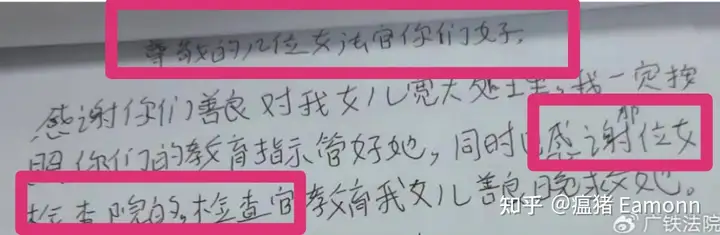 尊敬的几位女法官你们好。
感谢你们善良对我女儿宽大处理,我一定按
照你们的教育指示管好她,同时也感谢那位女
检查院的检查官教育我女儿善良挽救她。
知乎 @瘟猪 Eamonn
广铁法院